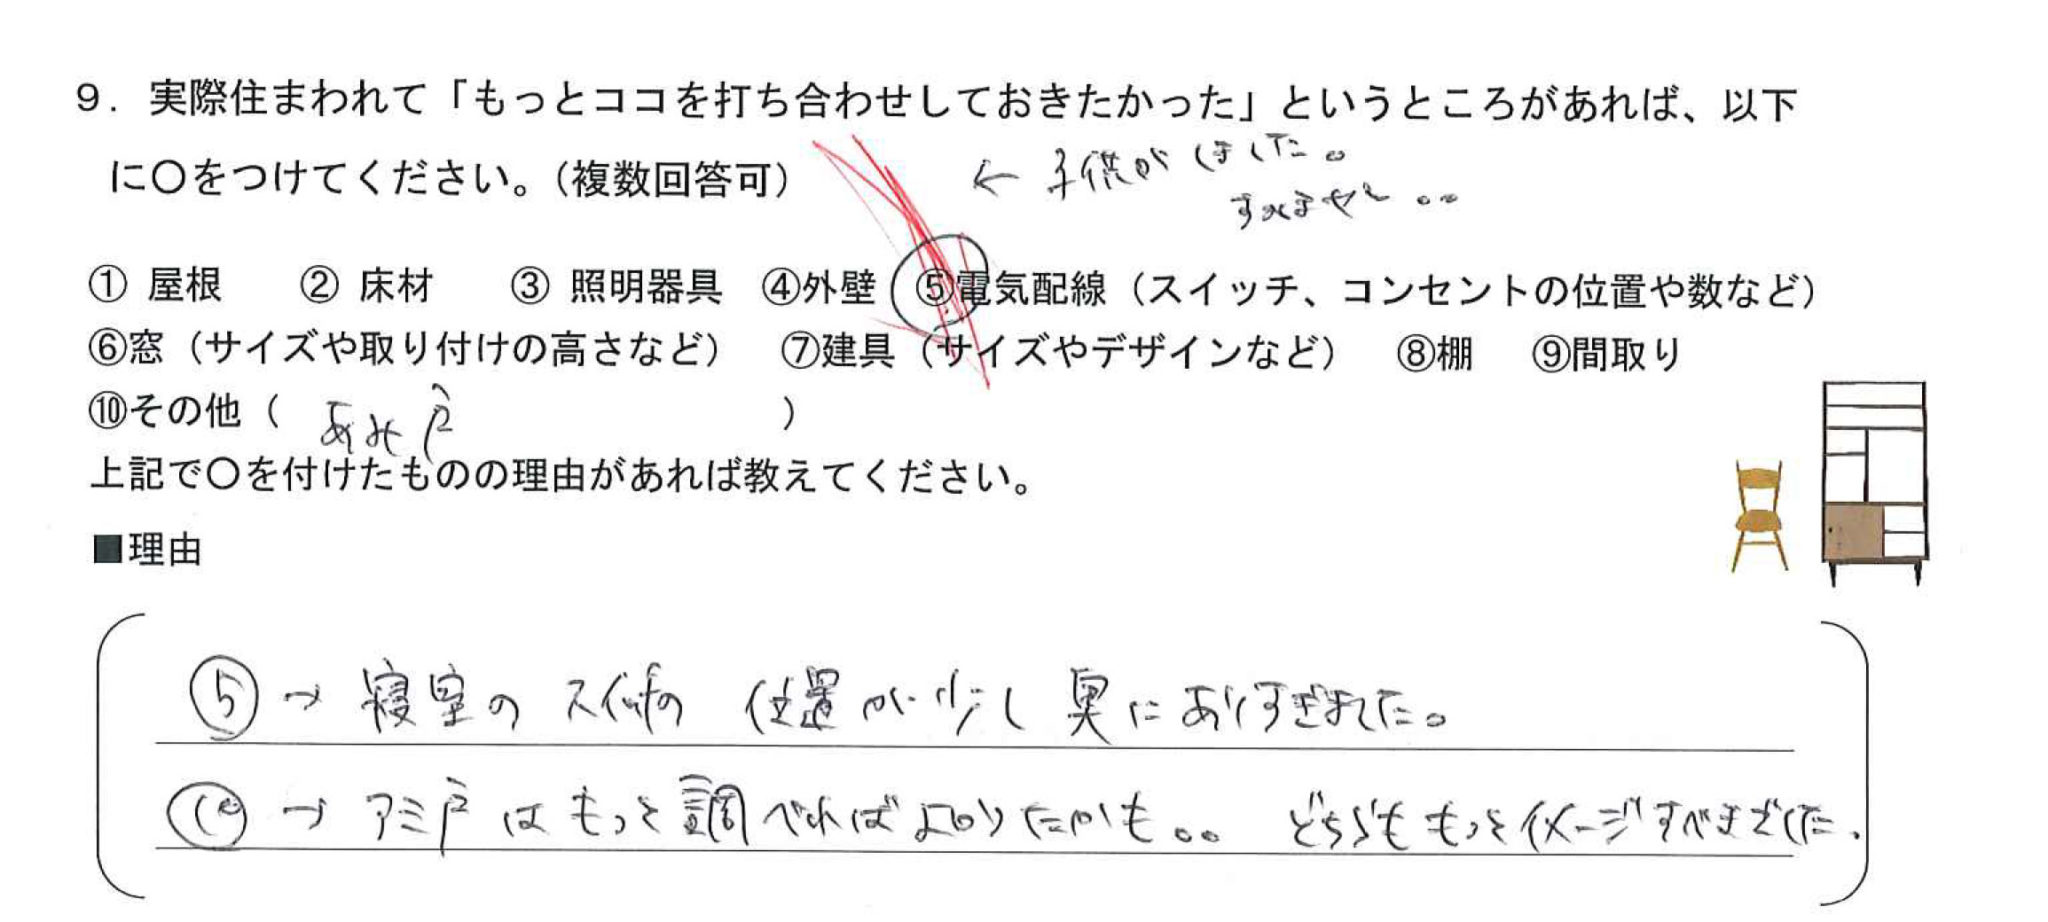 ９．実際住まわれて「もっとココを打ち合わせしておきたかった」というところがあれば、以下
に〇をつけてください。（複数回答可）
← 子供がしました。
すみません。。
① 屋根　② 床材　③ 照明器具　④外壁　⑤電気配線（スイッチ、コンセントの位置や数など）
⑥窓（サイズや取り付けの高さなど）　⑦建具（サイズやデザインなど）　⑧棚　⑨間取り
⑩その他（ あみ戸 ）
上記で〇を付けたものの理由があれば教えてください。
■理由
⑤→寝室のスイッチの 位置が少し奥にありすぎました。
⑩→アミ戸はもっと調べればよかったかも。。 どちらももっとイメージすべきでした.